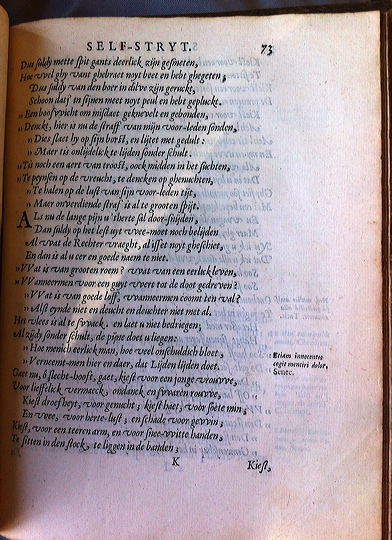 SELF-STRYT. 73
Dus suldy mette spit gants deerlick zijn gesmeten,
Hoe wel ghy vant ghebraet noyt beet en hebt ghegeten;
Dus suldy van den boer in dit've zijn geruckt,
Schoon dat je sijnen meet noyt peul en hebt gepluckt.
„ Een boosvvicht om misdaet geknevelt en gebonden,
„ Denckt, hier is nu de straff van mijn voor-leden sonden,
„ Dies slaet hy op sijn borst, en lijtet met gedult:
„ Maer t'is onlijdelick te lijden sonder schult.
„ Tis noch een aert van troost, oock midden in het suchten,
„ Te peysen op de vreucht, te dencken op ghenuchten,
„ Te halen op de lust van sijn voor-leden tijt,
„ Maer onverdiende straf is al te grooten spijt.
Als nu de lange pijn u 'therte sal door-snijden,
Dan suldy op het lest uyt wee-moet noch belijden
Al wat de Rechter vraeght, al isset noyt gheschiet,
En dan is al u eer en goede naem te niet.
„ VVat is van grooten roem? vvat van een eerlick leven,
„ VVanneermen voor een guyt vvert tot de doot gedreven?
„ VVat is van goede loff, vvanneermen coomt ten val?
„ Als't eynde niet en deucht en deuchter niet met al.
Het vlees is al te svvack, en laet u niet bedriegen,
Al zijdy sonder schult, de pijne doet u liegen:
„ Hoe menich eerlick man, hoe veel onschuldich bloet,
„ Verneemt-men hier en daer, dat Lijden lijden doet.
Etiam innocentes
cogit mentiri dolor,
Senec.
Gaet nu, ô slecht-hooft, gaet, kiest voor een jonge vrouvve,
Voor lieffelick vermaeck, ondanck en svvaren rouvve,
Kiest droef heyt, voor genucht; kiest haet, voor soete min;
En vvee, voor herte-lust; en schade voor gevvin;
Kiest, voor een teeren arm, en voor snee-vvitte handen,
Te sitten in den stock, te liggen in de banden;
K
Kiest,